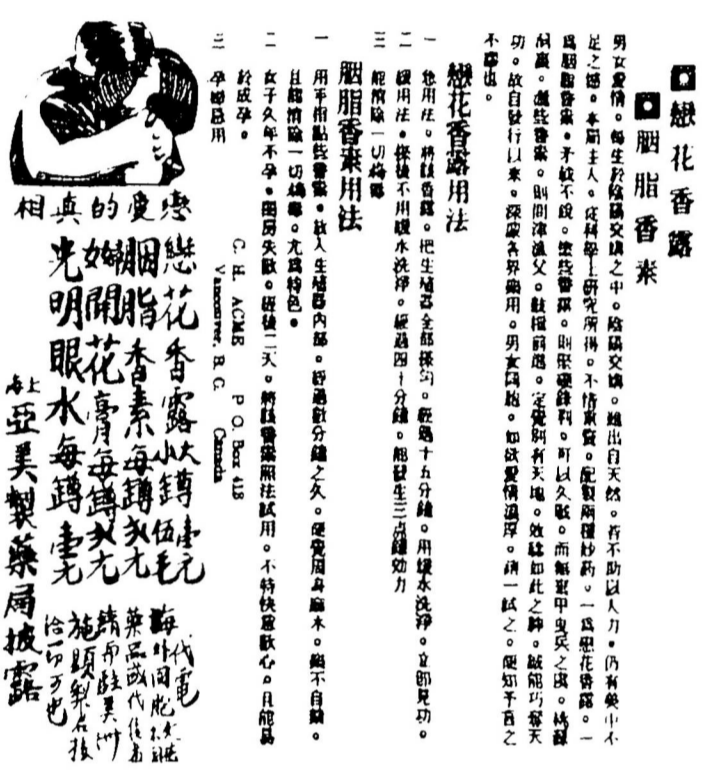 戀花香露
胭脂香素
男女愛情。每生於陰陽交媾之中。陰陽交媾。雖出自天然。若不助以人力。仍有美中不
足之憾。本局主人。從科學上研究所得。不惜重資。配製兩種妙药。一爲戀花香露。一
爲胭脂香素。矛戟不銳。塗些香露。則堅硬鋒利。可以久戰。而無棄甲曳兵之虞。桃源
洞裏。點些香素。則問津漁父。鼓棍前進。定覺別有天地。效驗如此之神。誠能巧奪天
功。故自發行以來。深蒙各界樂用。男女同胞。如欲愛情濃厚。請一試之。便知予言之
不謬也。
戀花香露用法
一 急用法。將該香露。把生植器全部搽勻。經過十五分鐘。用暖水洗淨。立卽見功。
二 緩用法。搽後不用暖水洗淨。經過四十分鐘。能發生三点鐘効力
三 能消除一切梅毒
胭脂香素用法
一 用手指點些香素。放入生植器內部。經過數分鐘之久。便覺周身麻木。樂不自禁。
且能消除一切梅毒。尤爲特色。
二 女子久年不孕。困房失歡。經後二天。將該香素照法試用。不特快意歡心。且能易
於成孕。
三 孕婦忌用
C. H. ACME P. O. Box 418
Vancouver, B. C. Canada
戀愛的真相
戀花香露大罇壹元
小罇伍毛
胭脂香素每罇弍元
婦開花膏每罇弍元
光明眼水每罇壹元
亞美製藥局披露